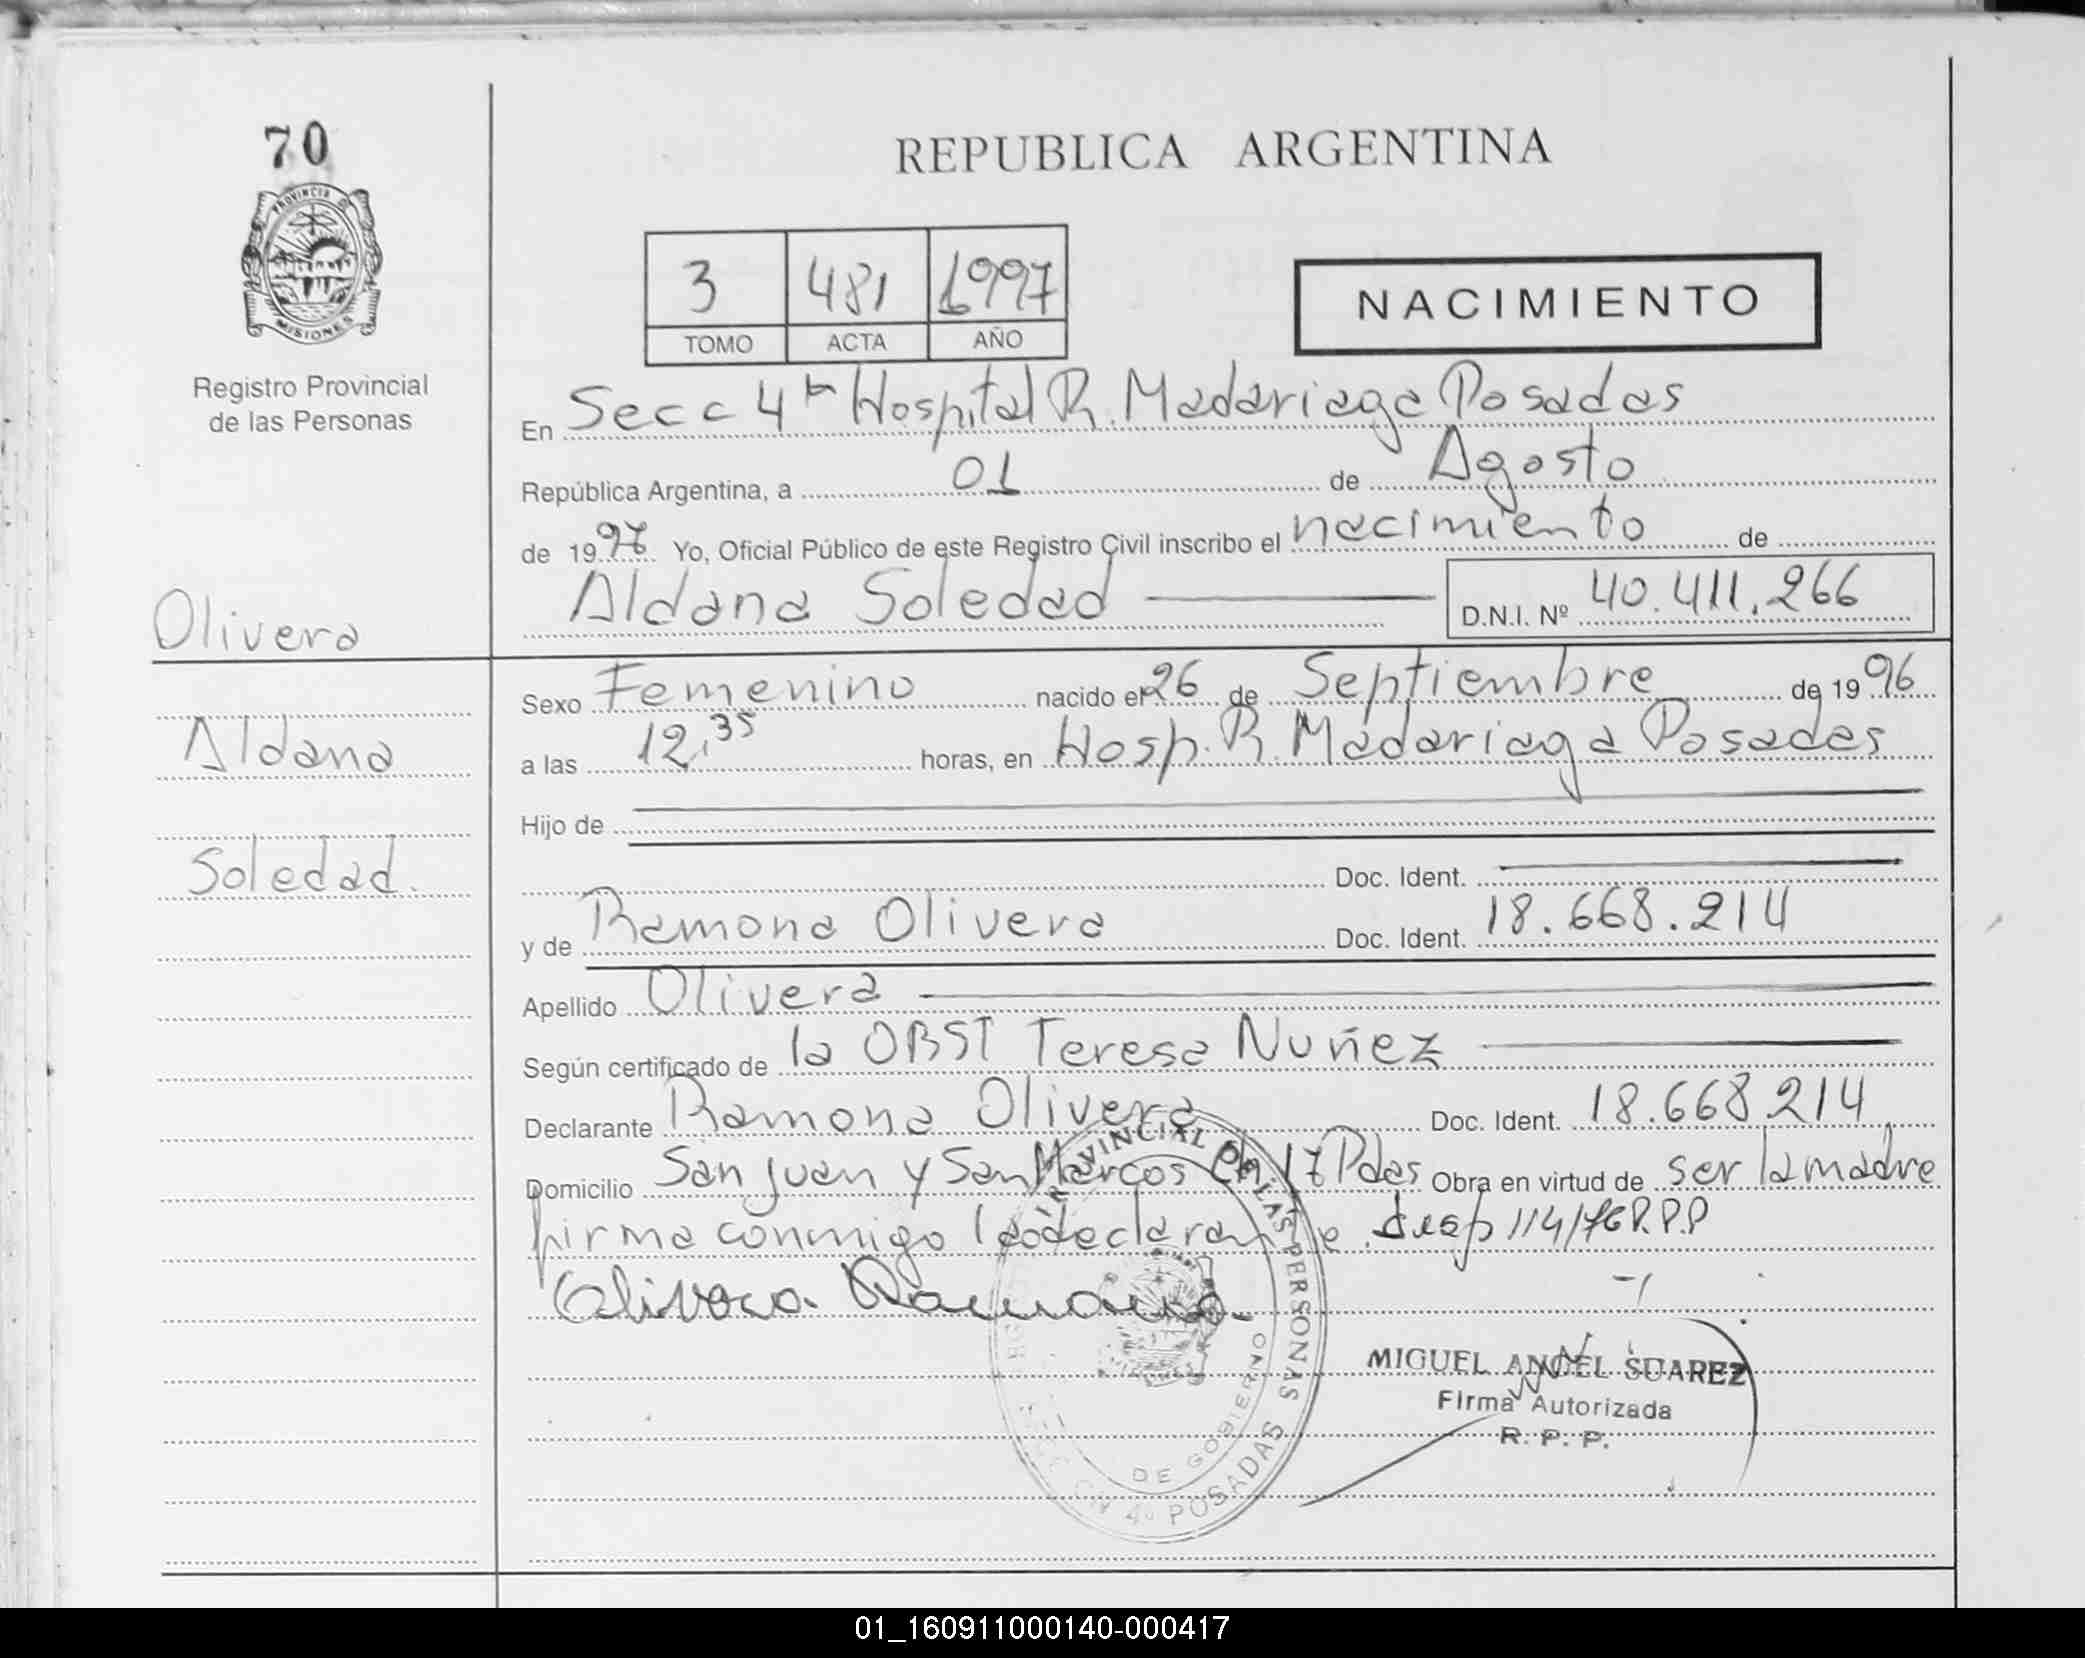 70
PROVINCIA DE
MISIONES
Registro Provincial
de las Personas
Olivera
Aldana
Soledad.
REPUBLICA ARGENTINA
3 481 1997
TOMO ACTA AÑO
NACIMIENTO
En Secc 4ta Hospital R. Madariaga Posadas
República Argentina, a 01 de Agosto
de 1997 Yo, Oficial Público de este Registro Civil inscribo el nacimiento de
Aldana Soledad D.N.I. Nº 40.411.266
Sexo Femenino nacido el 26 de Septiembre de 1996
a las 12,35 horas, en Hosp. R. Madariaga Posadas
Hijo de
Doc. Ident.
y de Ramona Olivera Doc. Ident. 18.668.214
Apellido Olivera
Según certificado de la OBST Teresa Nuñez
Declarante Ramona Olivera Doc. Ident. 18.668.214
Domicilio San Juan y San Marcos 17 Pdas Obra en virtud de ser la madre
firma conmigo declarante. Disp 114/76 R.P.P
Olivera Ramona.
PROVINCIAL DE LAS PERSONAS
DE GOBIERNO
4º POSADAS
MIGUEL ANGEL SUAREZ
Firma Autorizada
R. P. P.
01_160911000140-000417